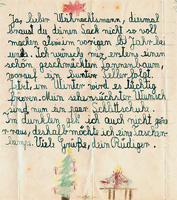 Ja, lieber Weihnachtsmann, diesmal
braust du deinen Sack nicht so voll
machen als wie im vorigen bß Jahr bei
uns. Ich wünsche mir erstens einen
schön geschmückten Tannenbaum,
worauf ein bunter Teller folgt.
Jetzt im Winter wird es tüchtig
frieren. Mein sehnsüchster Wunsch
sind nun ein paar Schlittschuhe.
Im dunklen will ich auch nicht gern
raus, deshalb möchte ich eine Taschen-
lampe. Viele Grüße, dein Rüdiger.